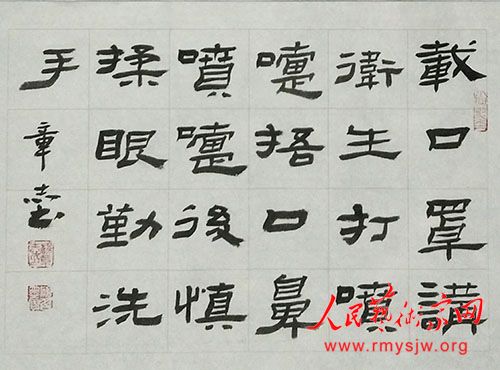 載口罩講
衛生打噴
嚏捂口鼻
噴嚏後慎
揉眼勤洗
手
章
人民藝術家网
www.rmysjw.org